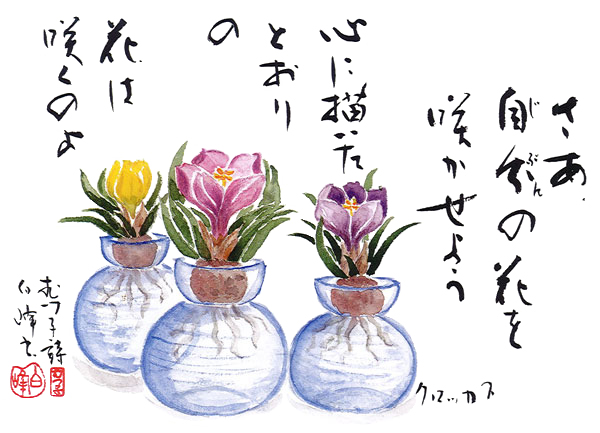 さあ
自分の花を
じぶん
咲かせよう
心に描いた
とおり
の
花は
咲くのよ
クロッカス
むつ子詩
白峰書
白峰